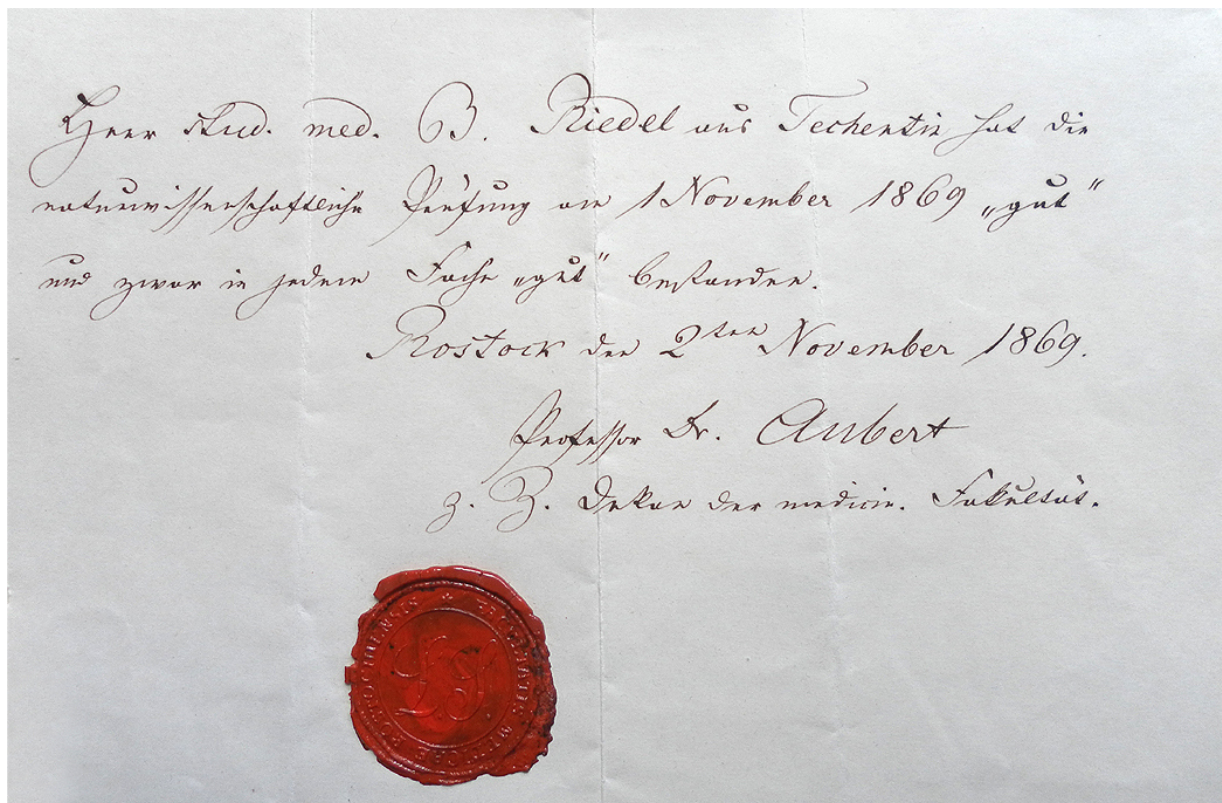 Herr stud. med. B. Riedel aus Techentin hat die
naturwissenschaftliche Prüfung am 1 November 1869 „gut“
und zwar in jedem Fache „gut“ bestanden.
Rostock den 2ten November 1869.
Professor Dr. Aubert
z. Z. Dekan der medicin. Fakultät.
FACULTATIS MEDICAE ROSTOCHIENSIS